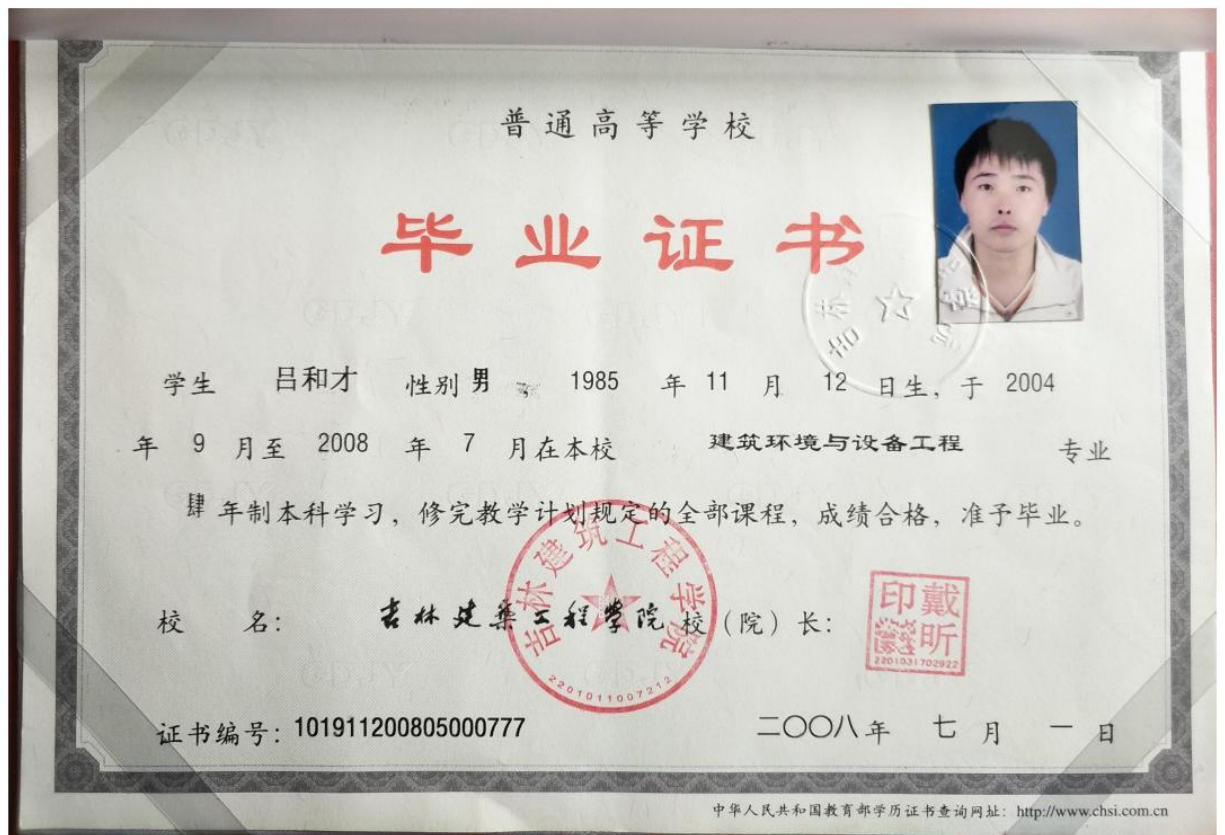 普通高等学校
毕业证书
学生 吕和才 性别 男 , 1985 年 11 月 12 日生, 于 2004
年 9 月至 2008 年 7 月在本校 建筑环境与设备工程 专业
肆 年制本科学习, 修完教学计划规定的全部课程, 成绩合格, 准予毕业。
校 名: 吉林建筑工程学院 校 (院) 长:
吉林建筑工程学院
2201011007212
戴昕
印
2201031702922
证书编号: 101911200805000777 二〇〇八年 七 月 一 日
中华人民共和国教育部学历证书查询网址: http://www.chsi.com.cn